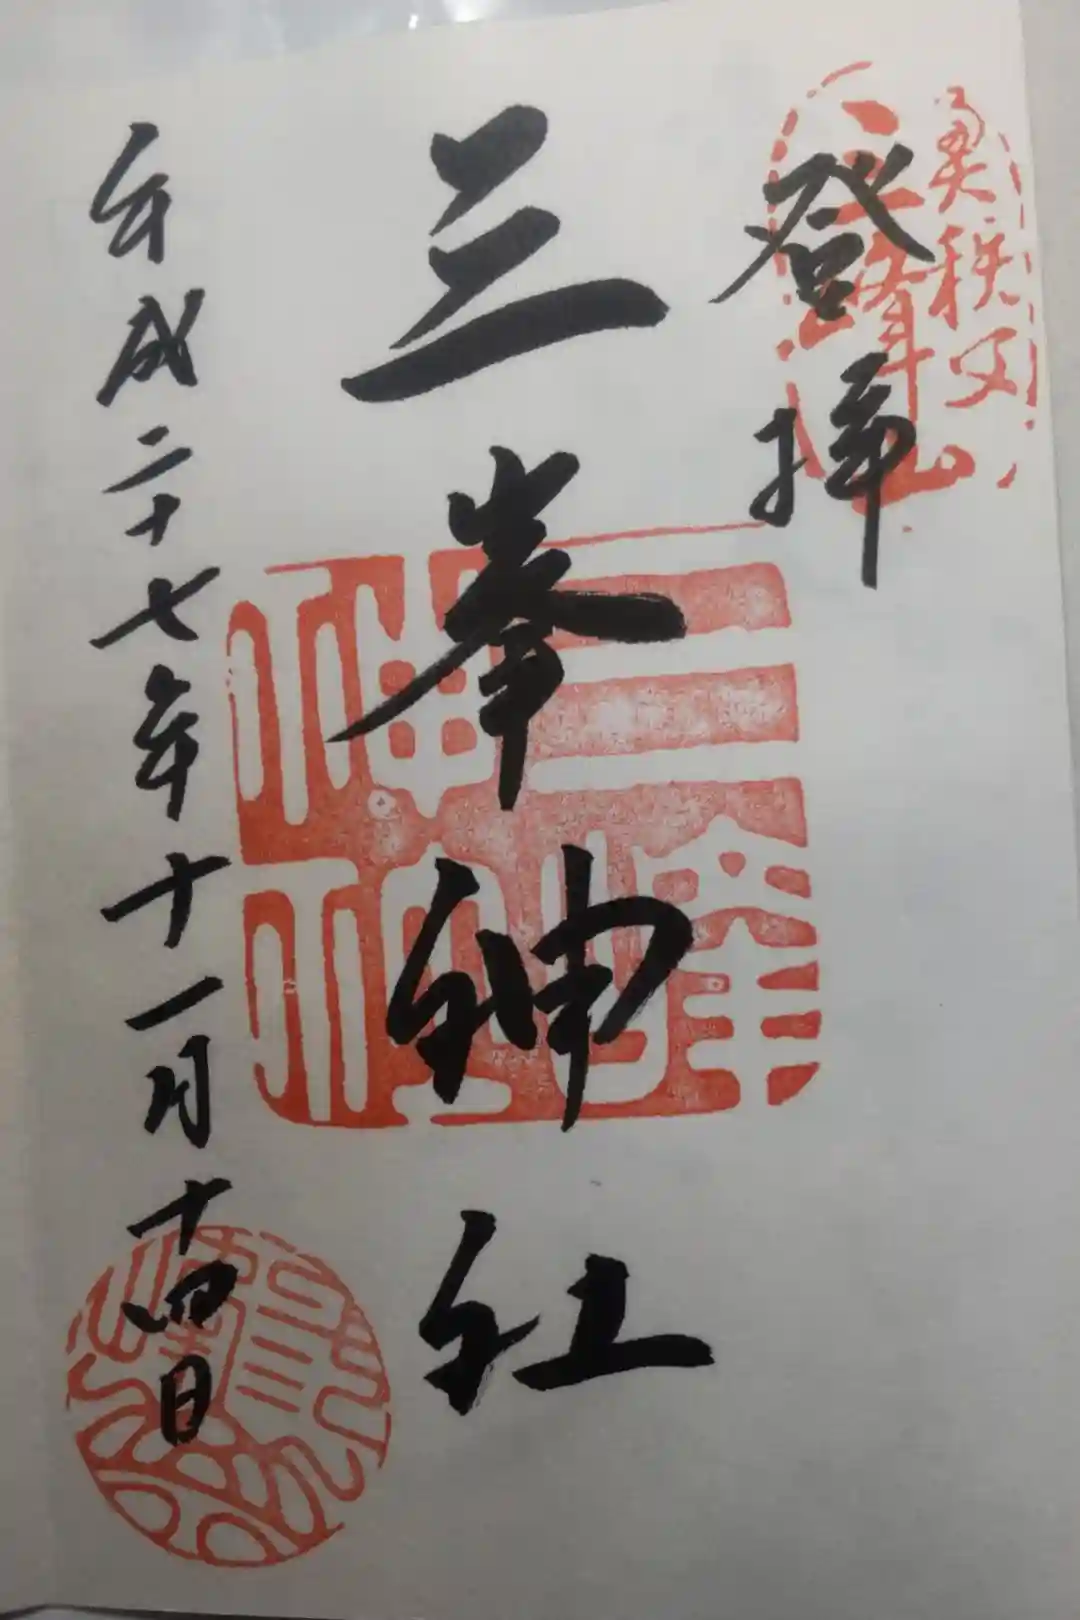 登拝
奥秩父
三峰山
三峯神社
三峯神社
平成二十七年十一月十四日